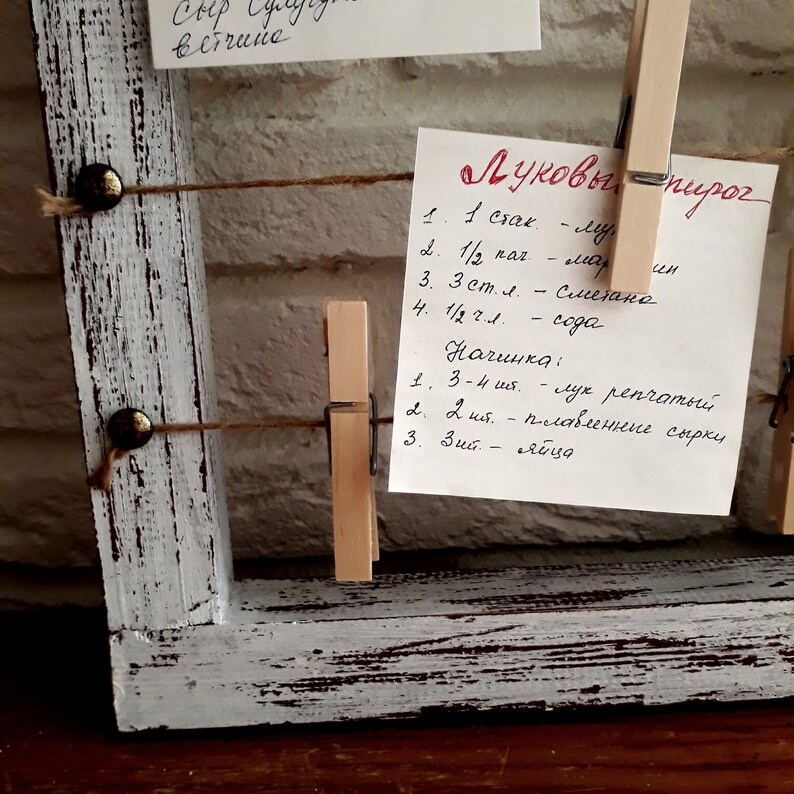 сыр сулугуни
ветчина
Луковый пирог
1. 1 стак. - мук
2. 1/2 пач. - мар ин
3. 3 ст.л. - сметана
4. 1/2 ч.л. - сода
Начинка:
1. 3-4 шт. - лук репчатый
2. 2 шт. - плавленные сырки
3. 3 шт. - яйца